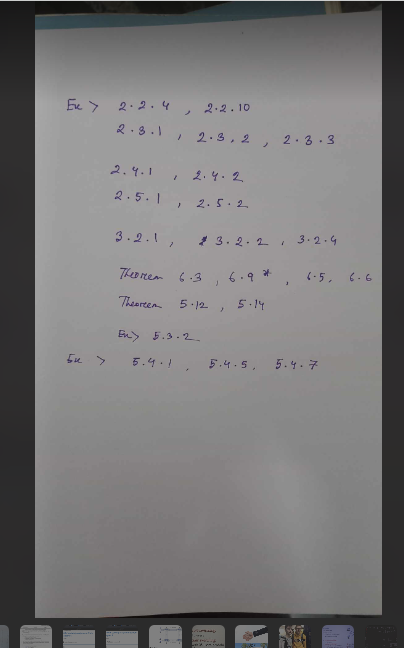 Ex > 2.2.4 , 2.2.10
2.3.1 , 2.3.2 , 2.3.3
2.4.1 , 2.4.2
2.5.1 , 2.5.2
3.2.1 , 3.2.2 , 3.2.4
Theorem 6.3 , 6.9 * , 6.5 , 6.6
Theorem 5.12 , 5.14
Ex > 5.3.2
Ex > 5.4.1 , 5.4.5 , 5.4.7